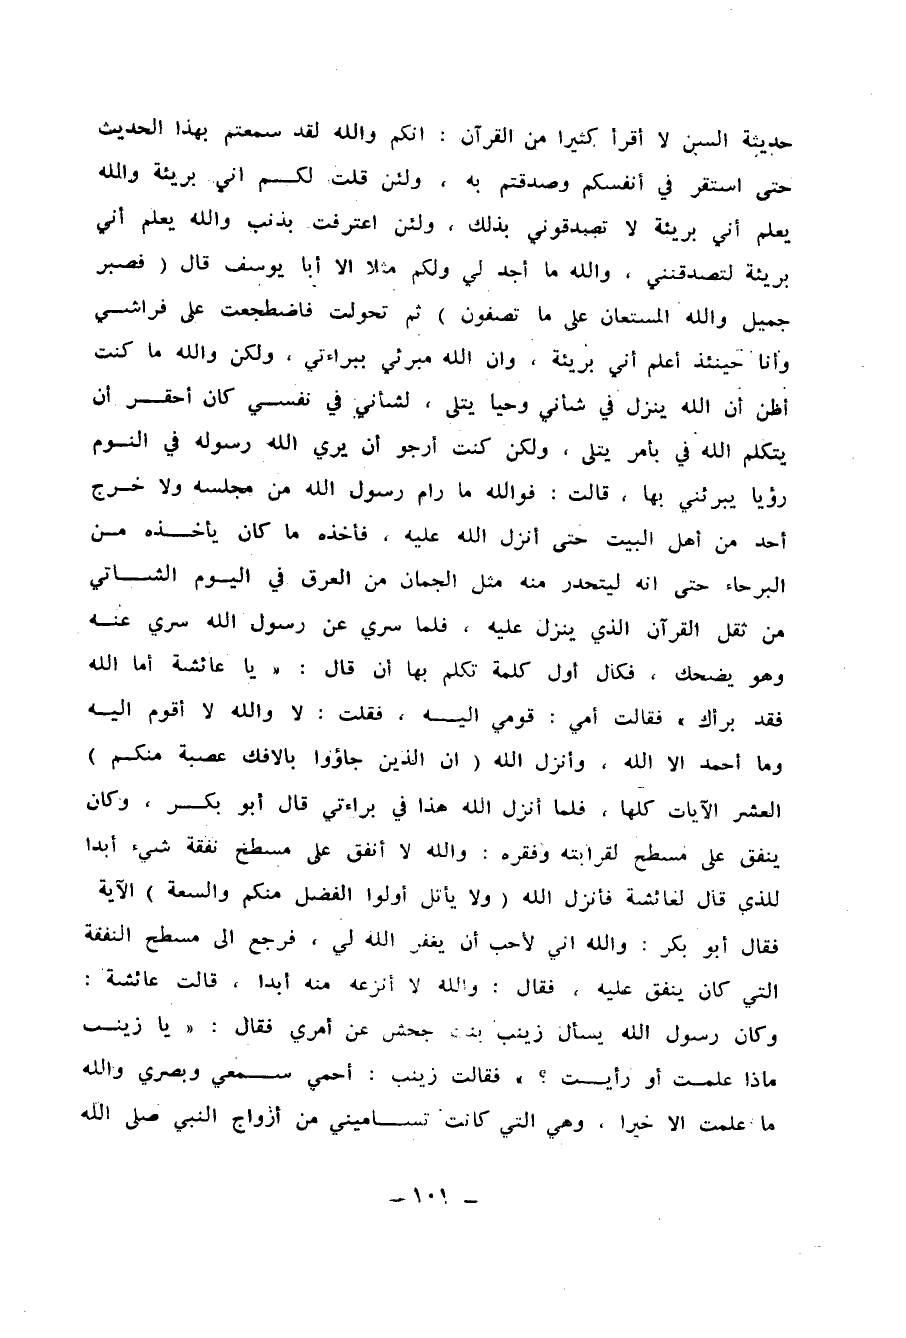 حديثة السن لا أقرأ كثيرا من القرآن : انكم والله لقد سمعتم بهذا الحديث
حتى استقر في أنفسكم وصدقتم به ، ولئن قلت لكم اني بريئة والله
يعلم أني بريئة لا تصدقوني بذلك ، ولئن اعترفت بذنب والله يعلم أني
بريئة لتصدقنني ، والله ما أجد لي ولكم مثلا الا أبا يوسف قال ( فصبر
جميل والله المستعان على ما تصفون ) ثم تحولت فاضطجعت على فراشي
وأنا حينئذ أعلم أني بريئة ، وان الله مبرئي ببراءتي ، ولكن والله ما كنت
أظن أن الله ينزل في شأني وحيا يتلى ، لشأني في نفسي كان أحقر أن
يتكلم الله في بأمر يتلى ، ولكن كنت أرجو أن يري الله رسوله في النوم
رؤيا يبرئني بها ، قالت : فوالله ما رام رسول الله من مجلسه ولا خرج
أحد من أهل البيت حتى أنزل الله عليه ، فأخذه ما كان يأخذه من
البرحاء حتى انه ليتحدر منه مثل الجمان من العرق في اليوم الشاتي
من ثقل القرآن الذي ينزل عليه ، فلما سري عن رسول الله سري عنه
وهو يضحك ، فكان أول كلمة تكلم بها أن قال : « يا عائشة أما الله
فقد برأك » فقالت أمي : قومي اليه ، فقلت : لا والله لا أقوم اليه
وما أحمد الا الله ، وأنزل الله ( ان الذين جاؤوا بالافك عصبة منكم )
العشر الآيات كلها ، فلما أنزل الله هذا في براءتي قال أبو بكر ، وكان
ينفق على مسطح لقرابته وفقره : والله لا أنفق على مسطح نفقة شيء أبدا
للذي قال لعائشة فأنزل الله ( ولا يأتل أولوا الفضل منكم والسعة ) الآية
فقال أبو بكر : والله اني لأحب أن يغفر الله لي ، فرجع الى مسطح النفقة
التي كان ينفق عليه ، فقال : والله لا أنزعه منه أبدا ، قالت عائشة :
وكان رسول الله يسأل زينب بنت جحش عن أمري فقال : « يا زينب
ماذا علمت أو رأيت ؟ » فقالت زينب : أحمي سمعي وبصري والله
ما علمت الا خيرا ، وهي التي كانت تساميني من أزواج النبي صلى الله
– ١٠١ –